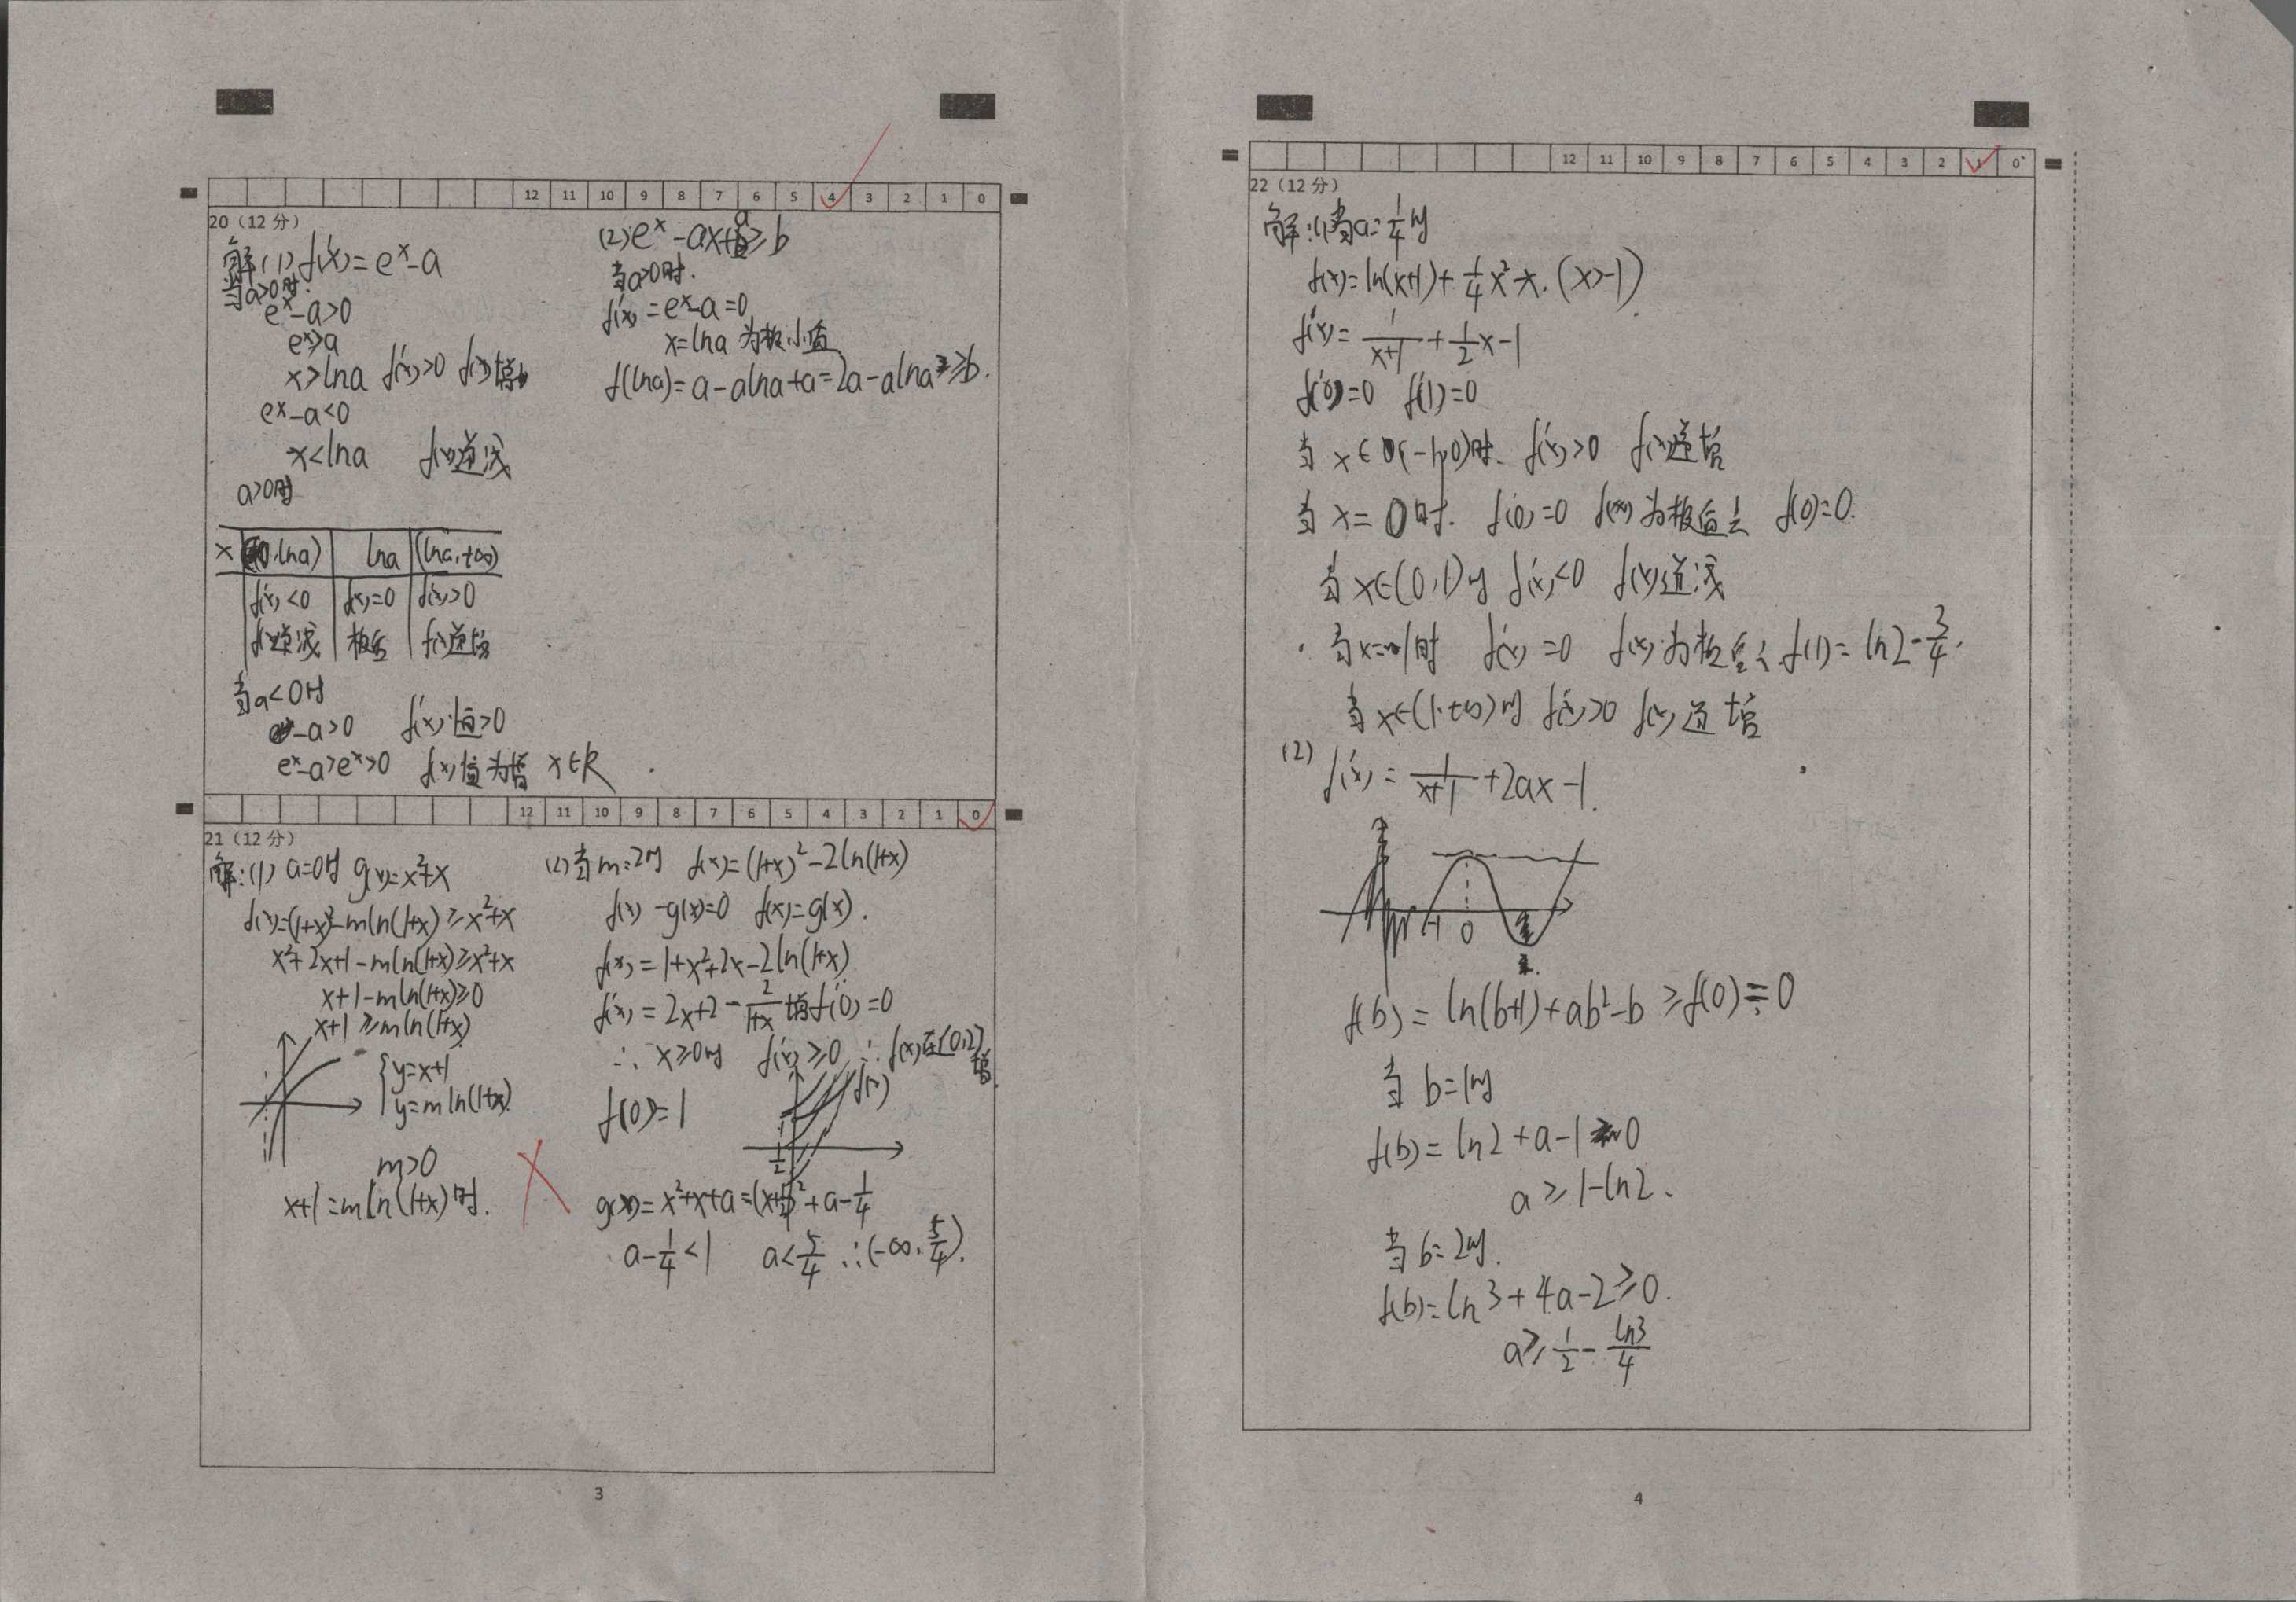 12 11 10 9 8 7 6 5 4 3 2 1 0
20（12 分）
解:(1) f'(x)=e^x-a
当a>0时.
e^x-a>0
e^x>a
x>lna f'(x)>0 f(x)增
e^x-a<0
x<lna f(x)递减
a>0时
x lna) lna (lna,+∞)
f'(x)<0 f'(x)=0 f'(x)>0
f(x)递减 极点 f(x)递增
当a<0时
-a>0 f'(x)恒>0
e^x-a>e^x>0 f(x)恒为增 x∈R
(2) e^x-ax+a≥b
当a>0时.
f'(x)=e^x-a=0
x=lna 为极小值
f(lna)=a-alna+a=2a-alna≥b.
12 11 10 9 8 7 6 5 4 3 2 1 0
21（12 分）
解:(1) a=0时 g(x)=x²+x
f(x)=(1+x)²-mln(1+x)≥x²+x
x²+2x+1-mln(1+x)≥x²+x
x+1-mln(1+x)≥0
x+1≥mln(1+x)
{y=x+1
y=mln(1+x)
m>0
x+1=mln(1+x)时.
(2)当m=2时 f(x)=(1+x)²-2ln(1+x)
f(x)-g(x)=0 f(x)=g(x).
f(x)=1+x²+2x-2ln(1+x)
f'(x)=2x+2-2/(1+x) 增 f'(0)=0
∴ x≥0时 f'(x)≥0 ∴f(x)在[0,2]增
f(x)
f(0)=1
1/2
g(x)=x²+x+a=(x+1/2)²+a-1/4
a-1/4<1 a<5/4 ∴(-∞,5/4).
3
12 11 10 9 8 7 6 5 4 3 2 1 0
22（12 分）
解:(1)当a=1/4时
f(x)=ln(x+1)+1/4x²-x.(x>-1)
f'(x)=1/(x+1)+1/2x-1
f'(0)=0 f'(1)=0
当x∈(-1,0)时. f'(x)>0 f(x)递增
当x=0时. f'(0)=0 f(x)为极值点 f(0)=0.
当x∈(0,1)时 f'(x)<0 f(x)递减
当x=1时 f'(x)=0 f(x)为极值点 f(1)=ln2-3/4.
当x∈(1,+∞)时 f'(x)>0 f(x)递增
(2) f'(x)=1/(x+1)+2ax-1.
-1 0
f(b)=ln(b+1)+ab²-b≥f(0)=0
当b=1时
f(b)=ln2+a-1≥0
a≥1-ln2.
当b=2时.
f(b)=ln3+4a-2≥0.
a≥1/2-ln3/4
4